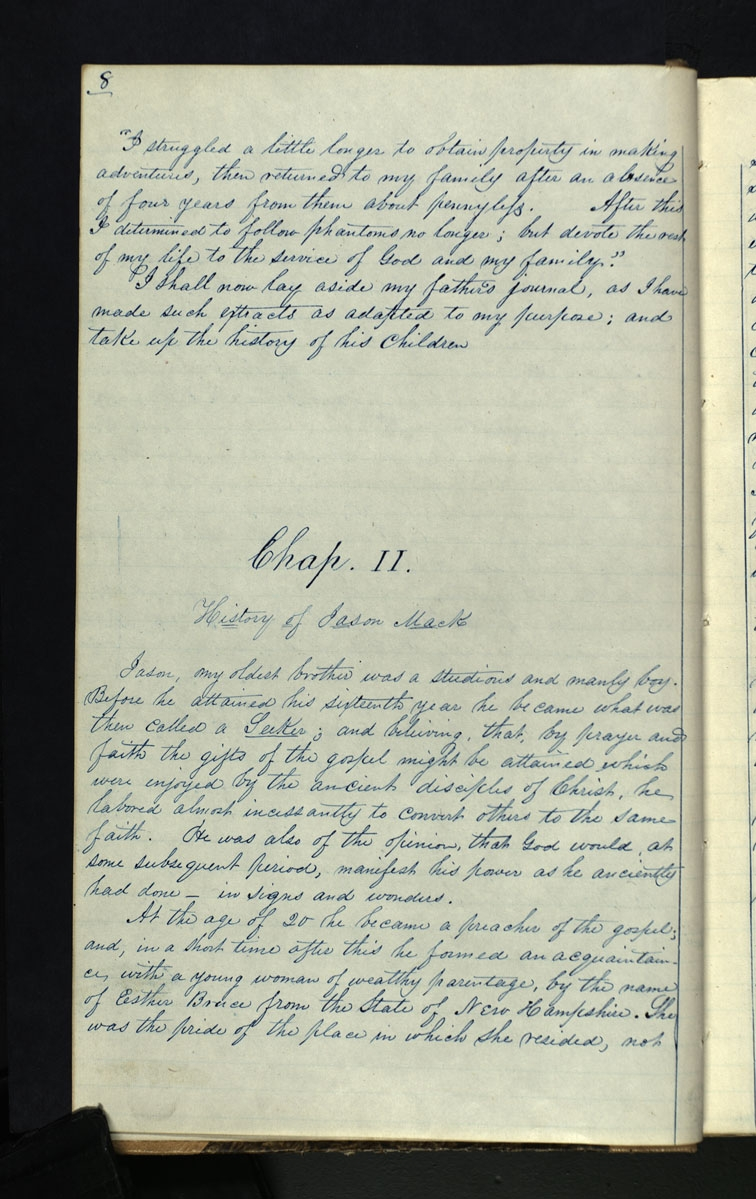 8
"I struggled a little longer to obtain property in making
adventures, then returned to my family after an absence
of four years from them about pennyless. After this
I determined to follow phantoms no longer; but devote the rest
of my life to the service of God and my family."
"I shall now lay aside my father's journal, as I have
made such extracts as adapted to my purpose; and
take up the history of his children
Chap. II.
History of Jason Mack
Jason, my oldest brother was a studious and manly boy.
Before he attained his sixteenth year he became what was
then called a Seeker; and believing, that, by prayer and
faith the gifts of the gospel might be attained which
were enjoyed by the ancient disciples of Christ, he
labored almost incessantly to convert others to the same
faith. He was also of the opinion, that God would, at
some subsequent period, manifest his power as he anciently
had done — in signs and wonders.
At the age of 20 he became a preacher of the gospel;
and, in a short time after this he formed an acquaintain-
ce, with a young woman of wealthy parentage, by the name
of Esther Bruce from the State of New Hampshire. She
was the pride of the place in which she resided, not